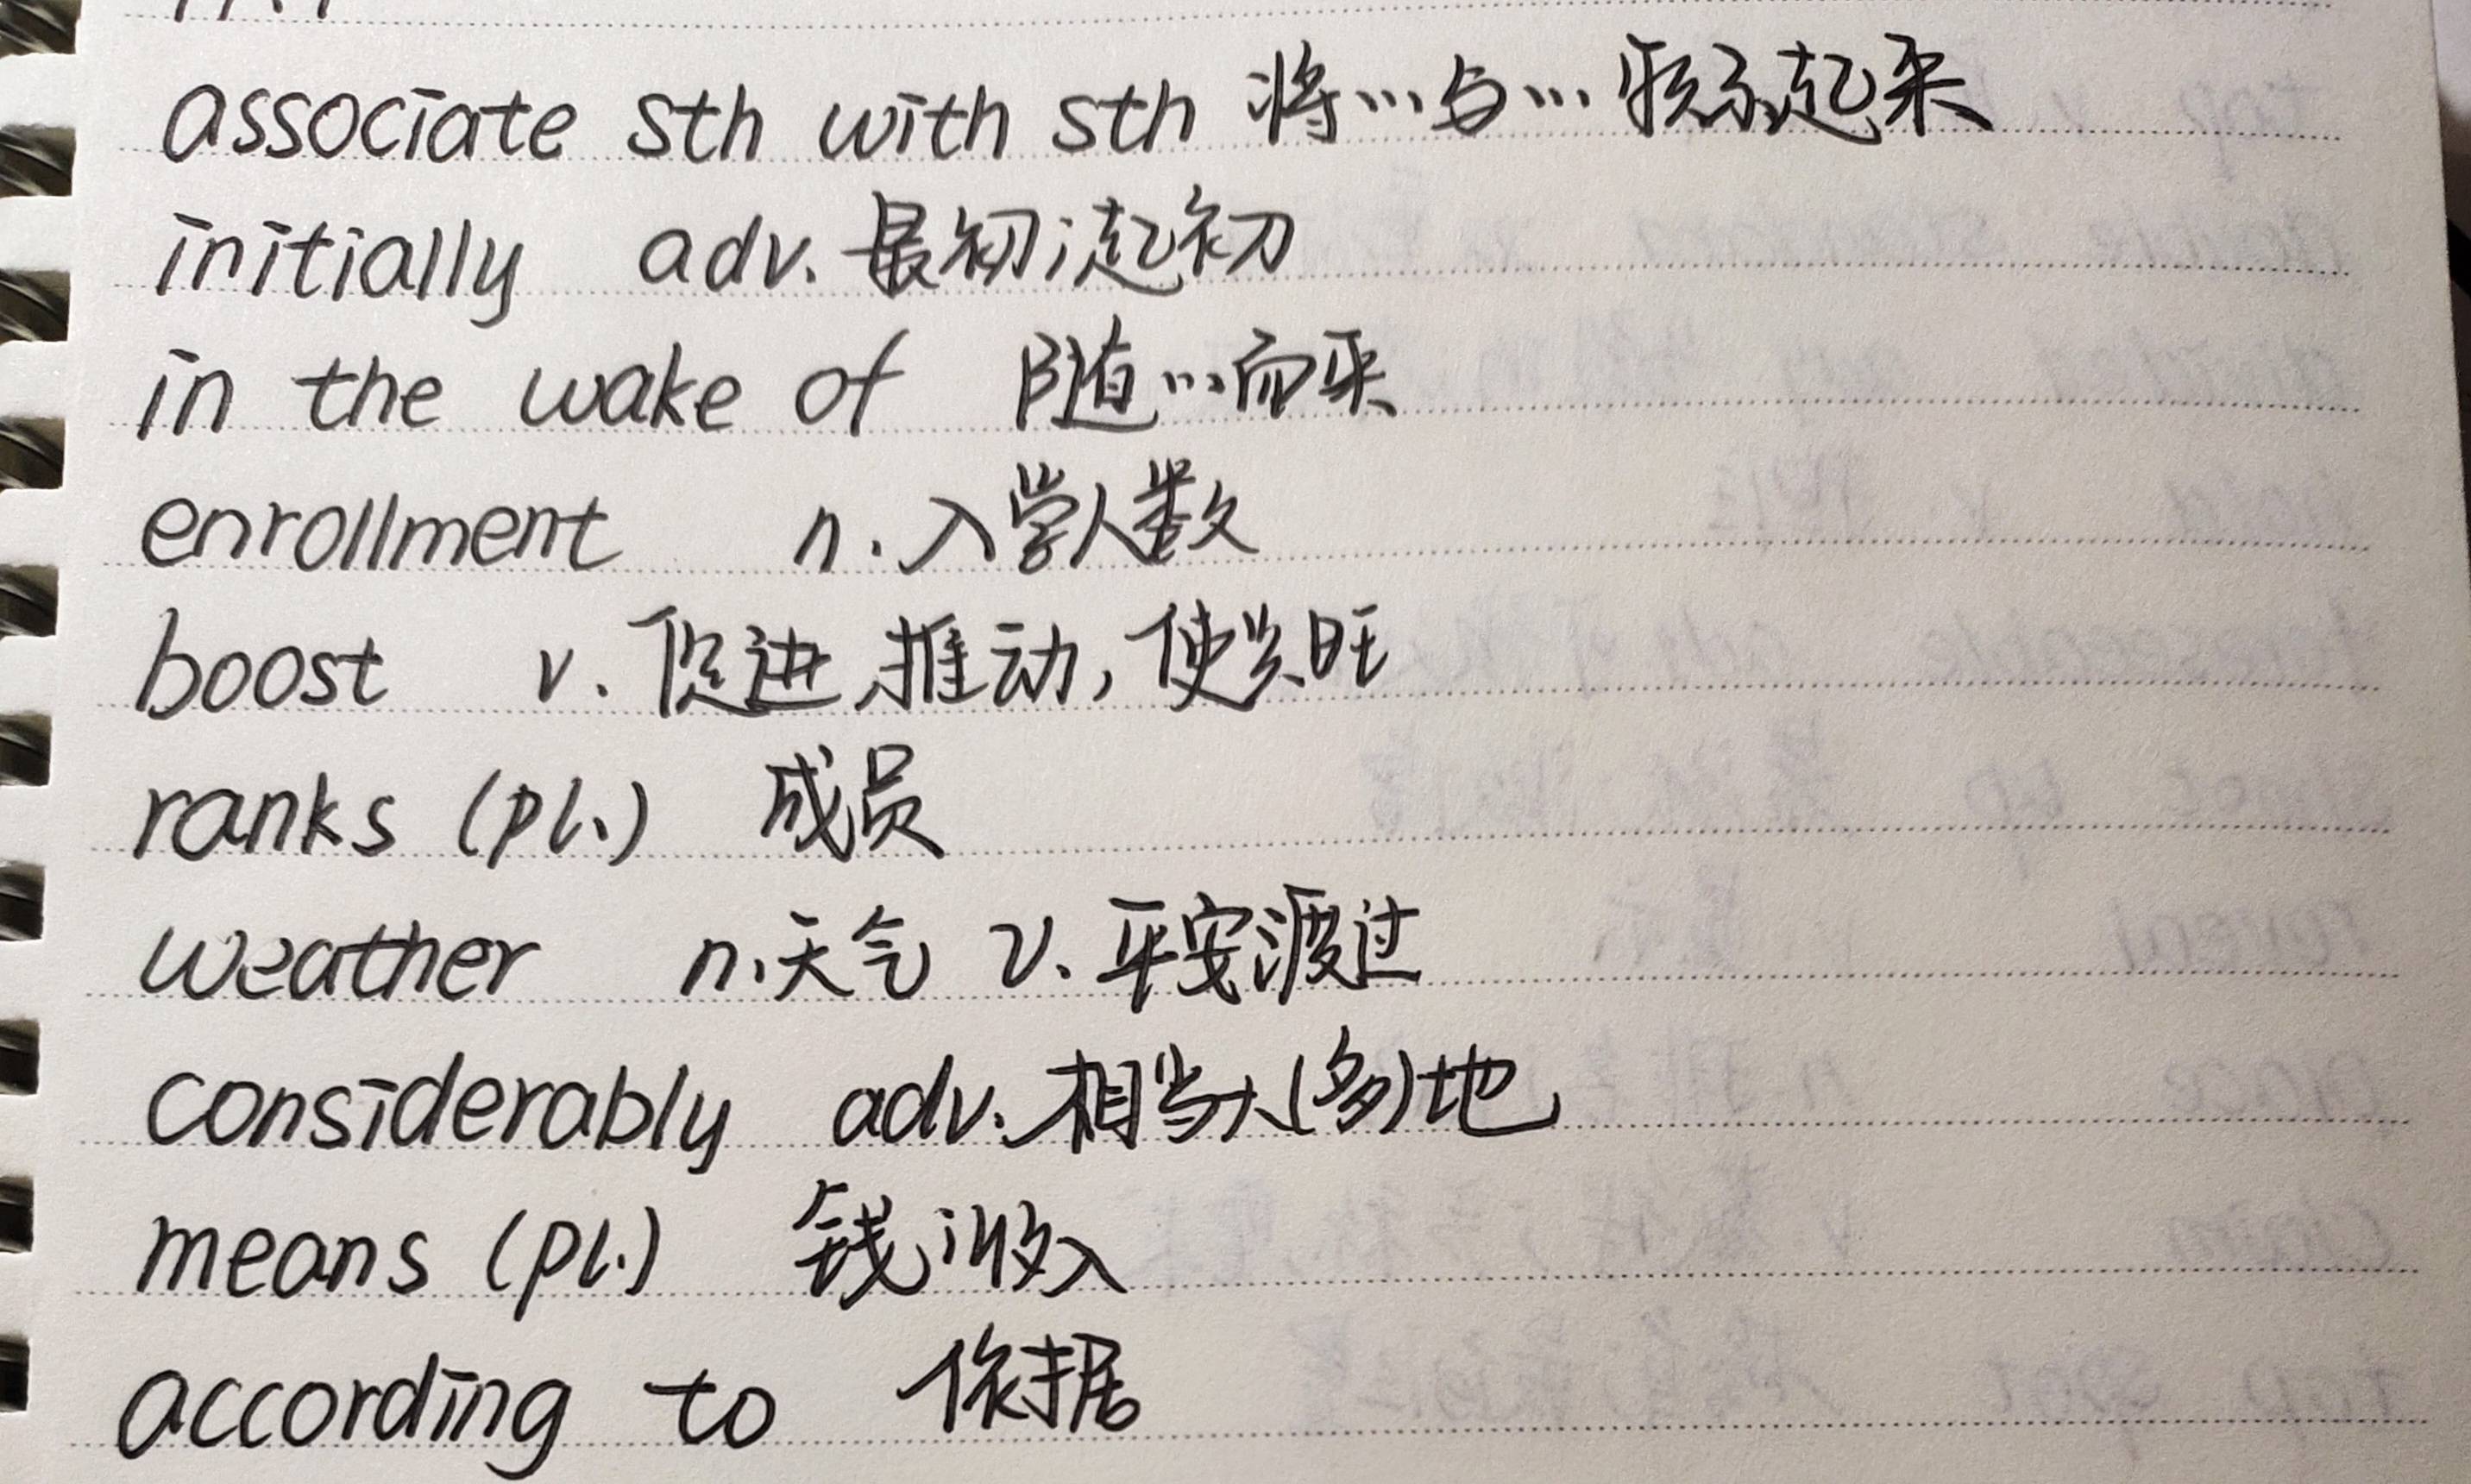 associate sth with sth 将…与…联系起来
initially adv. 最初;起初
in the wake of 随…而来
enrollment n. 入学人数
boost v. 促进,推动,使兴旺
ranks (pl.) 成员
weather n.天气 v. 平安渡过
considerably adv. 相当大(多)地
means (pl.) 钱;收入
according to 依据